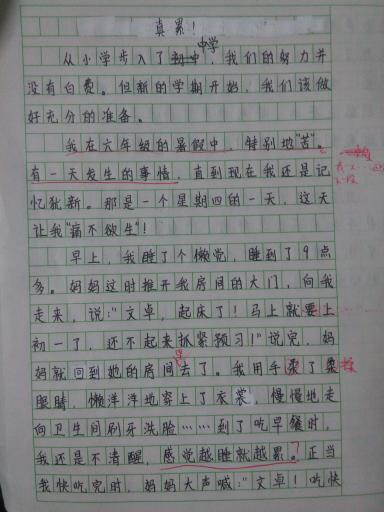 真累!
从小学步入了中学,我们的努力并
没有白费。但新的学期开始,我们该做
好充分的准备。
我在六年级的暑假中,特别地"苦"。
有一天发生的事情,直到现在我还是记
忆犹新。那是一个星期四的一天,这天
让我"痛不欲生"!
早上,我睡了个懒觉,睡到了9点
多。妈妈这时推开我房间的大门,向我
走来,说:"文卓,起床了!马上就要上
初一了,还不起来抓紧预习!"说完,妈
妈就回到她的房间去了。我用手柔了柔揉
眼睛,懒洋洋地穿上了衣裳,慢慢地走
向卫生间刷牙洗脸……到了吃早餐时,
我还是不清醒,感觉越睡就越累。正当
我快吃完时,妈妈大声喊:"文卓!吃快